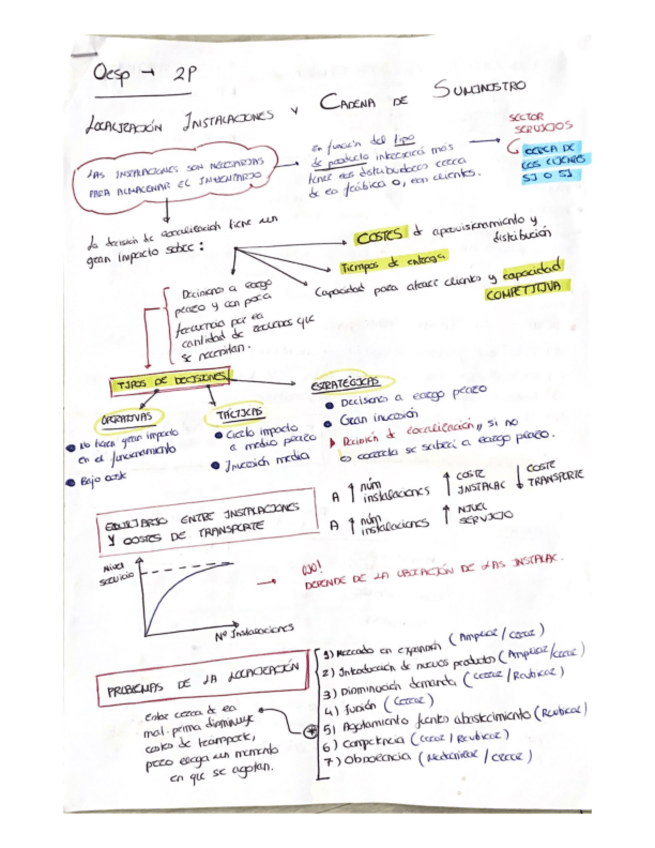 Oesp → 2P
LOCALIZACIÓN INSTALACIONES Y CADENA DE SUMINISTRO
LAS INSTALACIONES SON NECESARIAS
PARA ALMACENAR EL INVENTARIO
en función del tipo
de producto interesará más
tener los distribuidores cerca
de la fábrica o, con clientes.
SECTOR
SERVICIOS
CERCA DE
LOS CLIENTES
SI O SI
La decisión de localización tiene un
gran impacto sobre:
COSTES de aprovisionamiento y
distribución
Tiempos de entrega
Capacidad para atraer clientes y capacidad
COMPETITIVA
Decisiones a largo
plazo y con poca
frecuencia por la
cantidad de recursos que
se necesitan.
TIPOS DE DECISIONES
OPERATIVAS
No tienen gran impacto
en el funcionamiento
Bajo coste
TÁCTICAS
Cierto impacto
a medio plazo
Inversión media
ESTRATÉGICAS
Decisiones a largo plazo
Gran inversión
Decisión de localización, si no
es correcta se sabrá a largo plazo.
EQUILIBRIO ENTRE INSTALACIONES
Y COSTES DE TRANSPORTE
A ↑ núm instalaciones ↑ COSTE INSTALAC ↓ COSTE TRANSPORTE
A ↑ núm instalaciones ↑ NIVEL SERVICIO
Nivel
servicio
Nº Instalaciones
→ OJO!
DEPENDE DE LA UBICACIÓN DE LAS INSTALAC.
PROBLEMAS DE LA LOCALIZACIÓN
Estar cerca de la
mat. prima disminuye
costes de transporte,
pero llega un momento
en que se agotan.
1) Mercado en expansión (Ampliar / cerrar)
2) Introducción de nuevos productos (Ampliar/cerrar)
3) Disminución demanda (cerrar / Reubicar)
4) Fusión (Cerrar)
5) Agotamiento fuentes abastecimiento (Reubicar)
6) Competencia (Cerrar / Reubicar)
7) Obsolencia (Modernizar / cerrar)